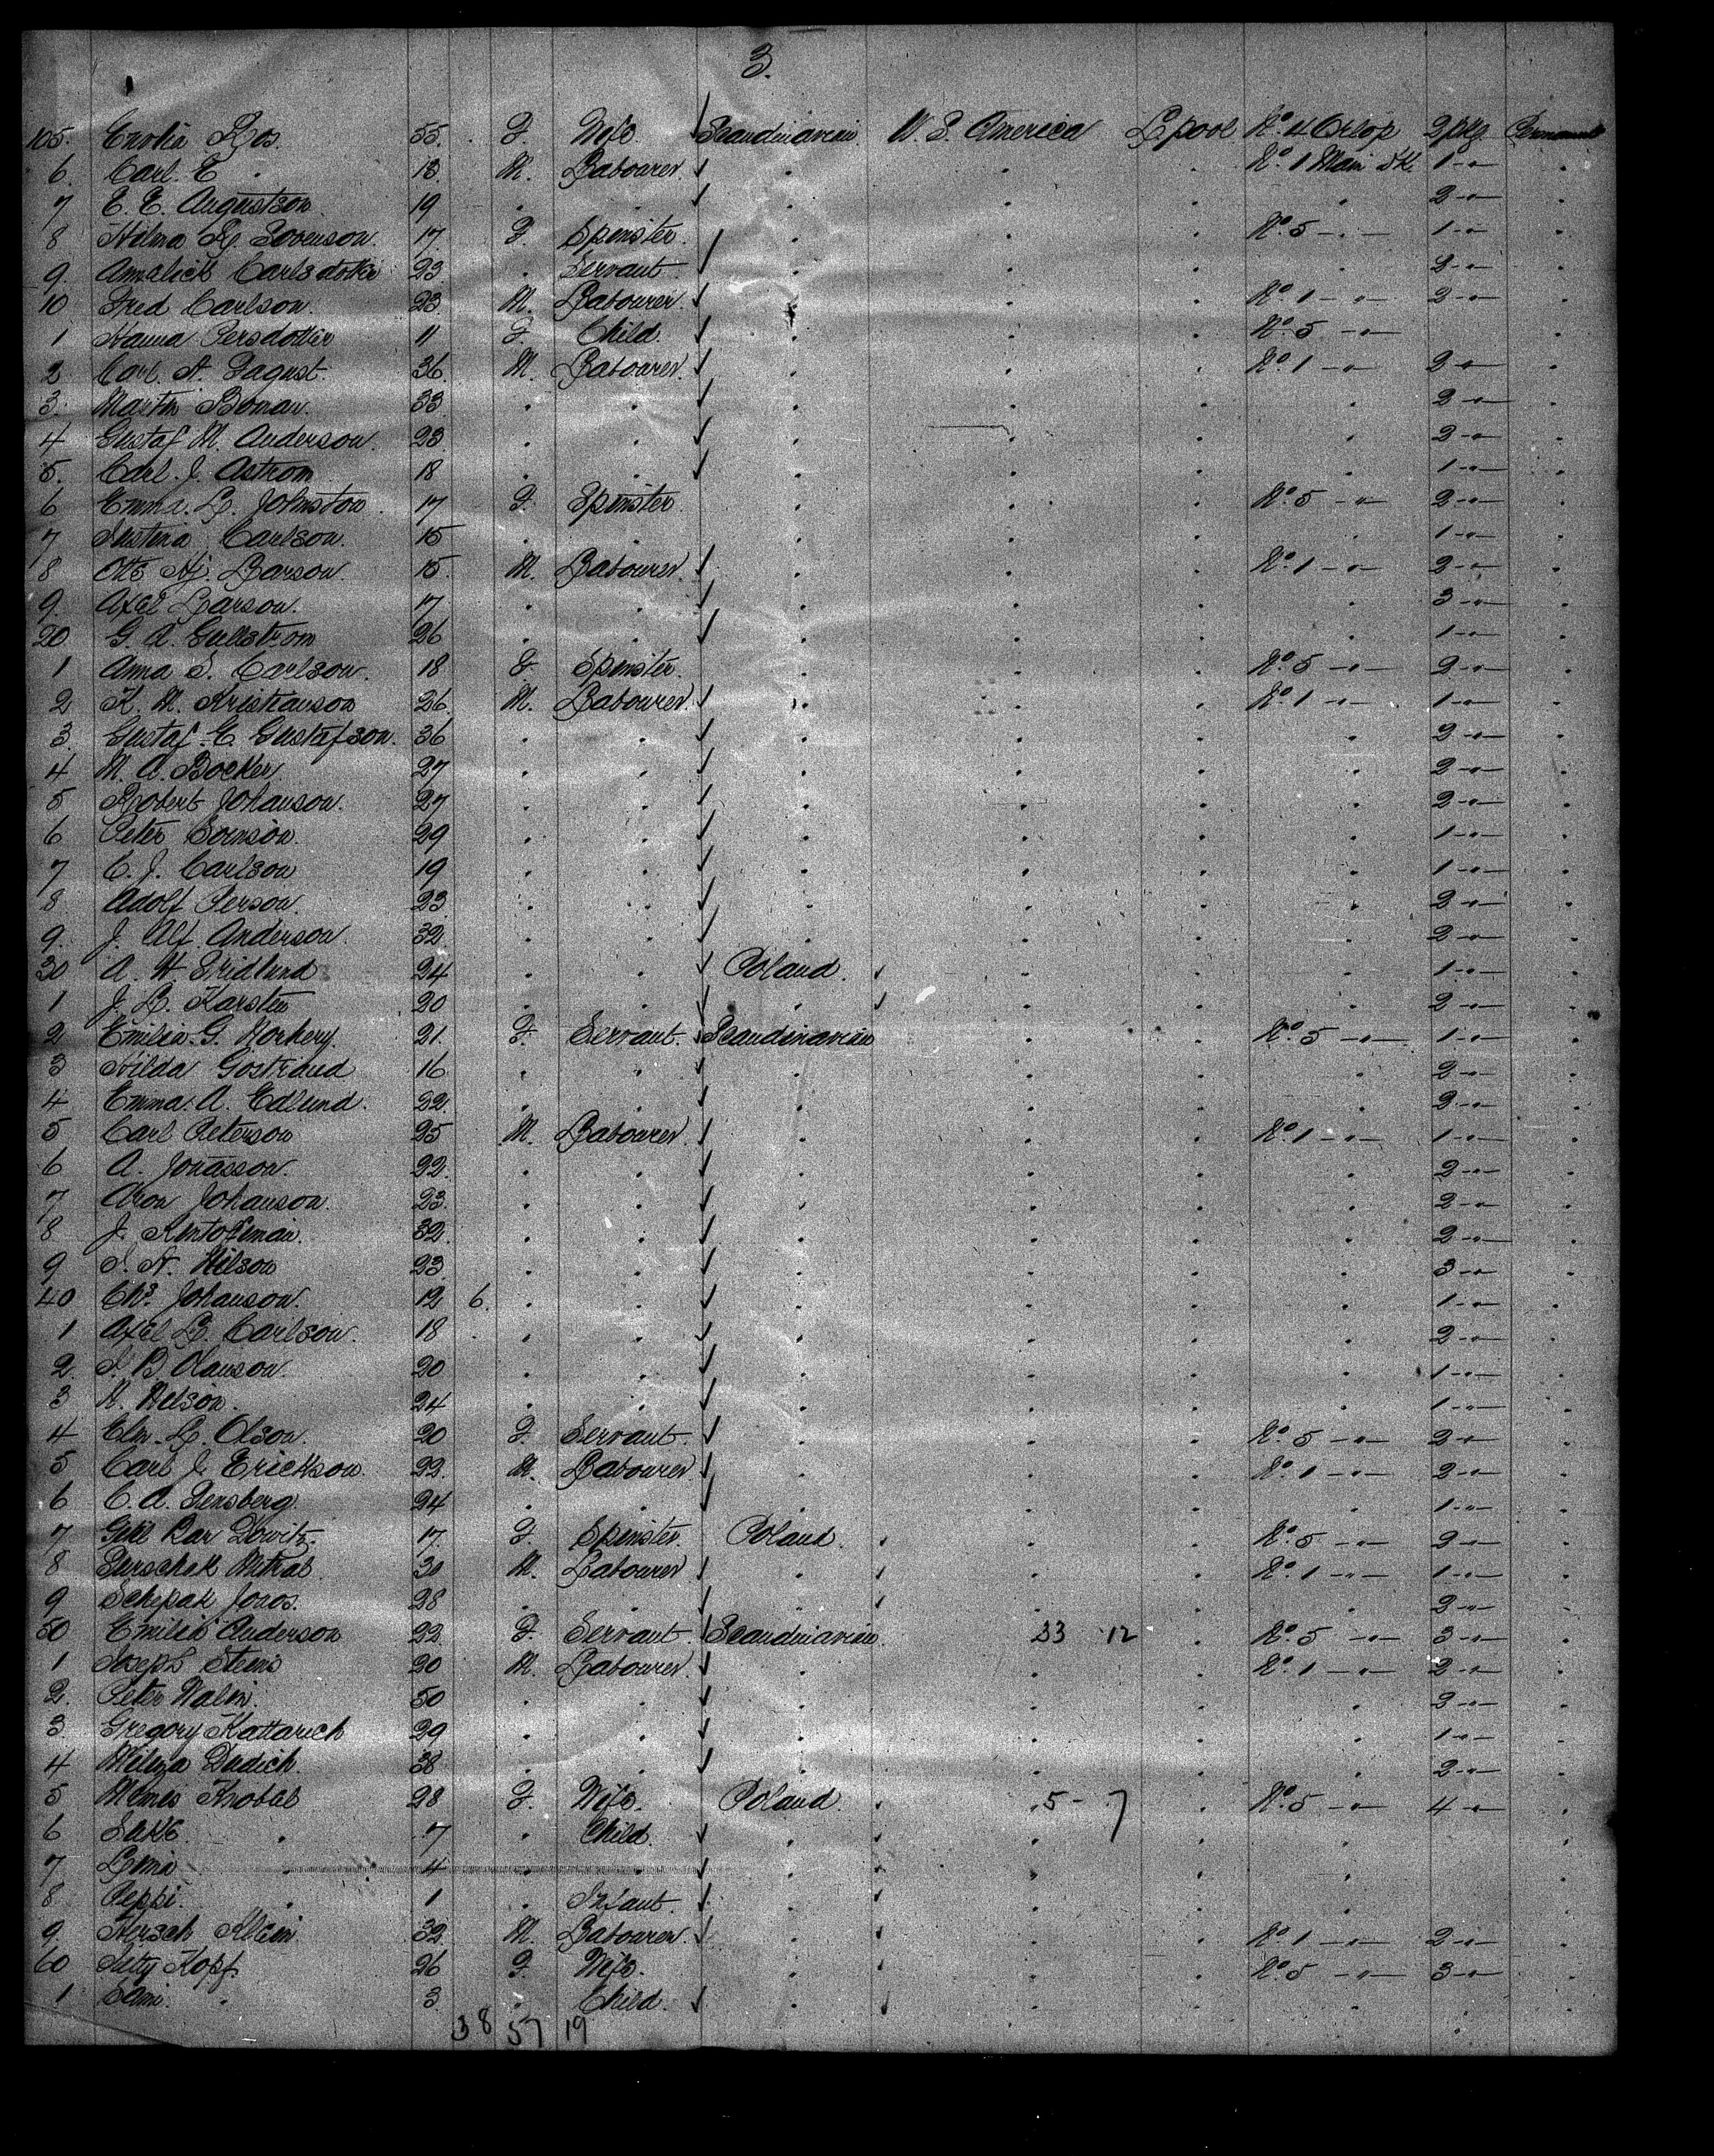 3.
105. 55. F. Wife Scandinavian U. S. America L.pool No. 4 Orlop 2 pkg. Permanent
6 Carl. E " 13 M. Labourer. " " " No. 1 Main DK. 1 - " - "
7 E. E. Augustson 19 " " " " " " 2 - " - "
8 Hilma Sovenson. 17 F. Spinster. " " " No. 5 - " - 1 - " - "
9. Carlsdotter 23 " Servant " " " " "
10 Fred Carlson. 23 M. Labourer. " " " No. 1 - " - 2 - " - "
1 Hanna Persdotter 11 F. Child. " " " No. 5 - " - "
2 Carl. A. 36. M. Labourer. " " " No. 1 - " - 2 - " - "
3. Martin Boman. 33 " " " " " " 2 - " - "
4 Gustaf M. Anderson. 23. " " " " " " 2 - " - "
5. Carl. J. Astrom 18 " " " " " " 1 - " - "
6 Emma. L. Johnston. 17 F. Spinster. " " " No. 5 - " - 2 - " - "
7 Carlson. 15 " " " " " " 1 - " - "
8 Otto Hj. Larson. 15. M. Labourer. " " " No. 1 - " - 2 - " - "
9. Axel Larson. 17 " " " " " " 3 - " - "
20 G. A. Gullstrom 26 " " " " " " 1 - " - "
1 Anna S. Carlson. 18 F. Spinster. " " " No. 5 - " - 2 - " - "
2 K. M. Kristianson 26. M. Labourer. " " " No. 1 - " - 1 - " - "
3. Gustaf. E. Gustafson. 36 " " " " " " 2 - " - "
4 M. A. Bocker. 27 " " " " " " 2 - " - "
5 Robert Johanson. 27 " " " " " " 2 - " - "
6 Peter 29 " " " " " " 1 - " - "
7 C. J. Carlson 19 " " " " " " 1 - " - "
8 Adolf Person. 23 " " " " " " 2 - " - "
9. J. Alf. Anderson. 32. " " " " " " 2 - " - "
30 A. H Fridlund 24 " " Poland. " " " 1 - " - "
1 J. L. Karsten 20 " " " " " " 2 - " - "
2 Emilia. G. 21. F. Servant. Scandinavian " " No. 5 - " - 1 - " - "
3 Hilda Gostrand 16 " " " " " " 2 - " - "
4 Emma. A. Edlund. 22. " " " " " " 2 - " - "
5 Carl Peterson 25 M. Labourer. " " " No. 1 - " - 1 - " - "
6 A. Jonasson. 22. " " " " " " 2 - " - "
7 Aron Johanson. 23. " " " " " " 2 - " - "
8 J. 32. " " " " " " 2 - " - "
9 N. Nilson 23 " " " " " " 3 - " - "
40 Chs. Johanson. 12 6. " " " " " " 1 - " - "
1 Axel L. Carlson. 18 " " " " " " 2 - " - "
2. B. Olauson. 20 " " " " " " 1 - " - "
3 N. Nelson. 24 " " " " " " 1 - " - "
4 L. Olson. 20 F. Servant. " " " No. 5 - " - 2 - " - "
5 Carl J. Erickson. 22. M. Labourer " " " No. 1 - " - 2 - " - "
6 C. A. 24 " " " " " " 1 - " - "
7 17. F. Spinster. Poland. " " No. 5 - " - 2 - " - "
8 30 M. Labourer " " " No. 1 - " - 1 - " - "
9 Schepak Joros. 28 " " " " " " 2 - " - "
50 Emilia Anderson 22 F. Servant. Scandinavian. 33 12 " No. 5 - " - 3 - " - "
1 Joseph Steens 20 M. Labourer. " " " No. 1 - " - 2 - " - "
2. Peter Walin. 50 " " " " " " "
3. Gregory Kattarich 29 " " " " " " 1 - " - "
4 Dudich. 38 " " " " " " 2 - " - "
5 28 F. Wife. Poland. 5 - 7 " No. 5 - " - 4 - " - "
6 " 7 " Child. " " " " "
7 " 4 " " " " " " "
8. Peppi. " 1 " Infant. " " " " "
9. Hersch Klein 32. M. Labourer. " " " No. 1 - " - 2 - " - "
60 Kopf. 26 F. Wife. " " " No. 5 - " - 3 - " - "
1 " 3 " Child. " " " " "
38 57 19